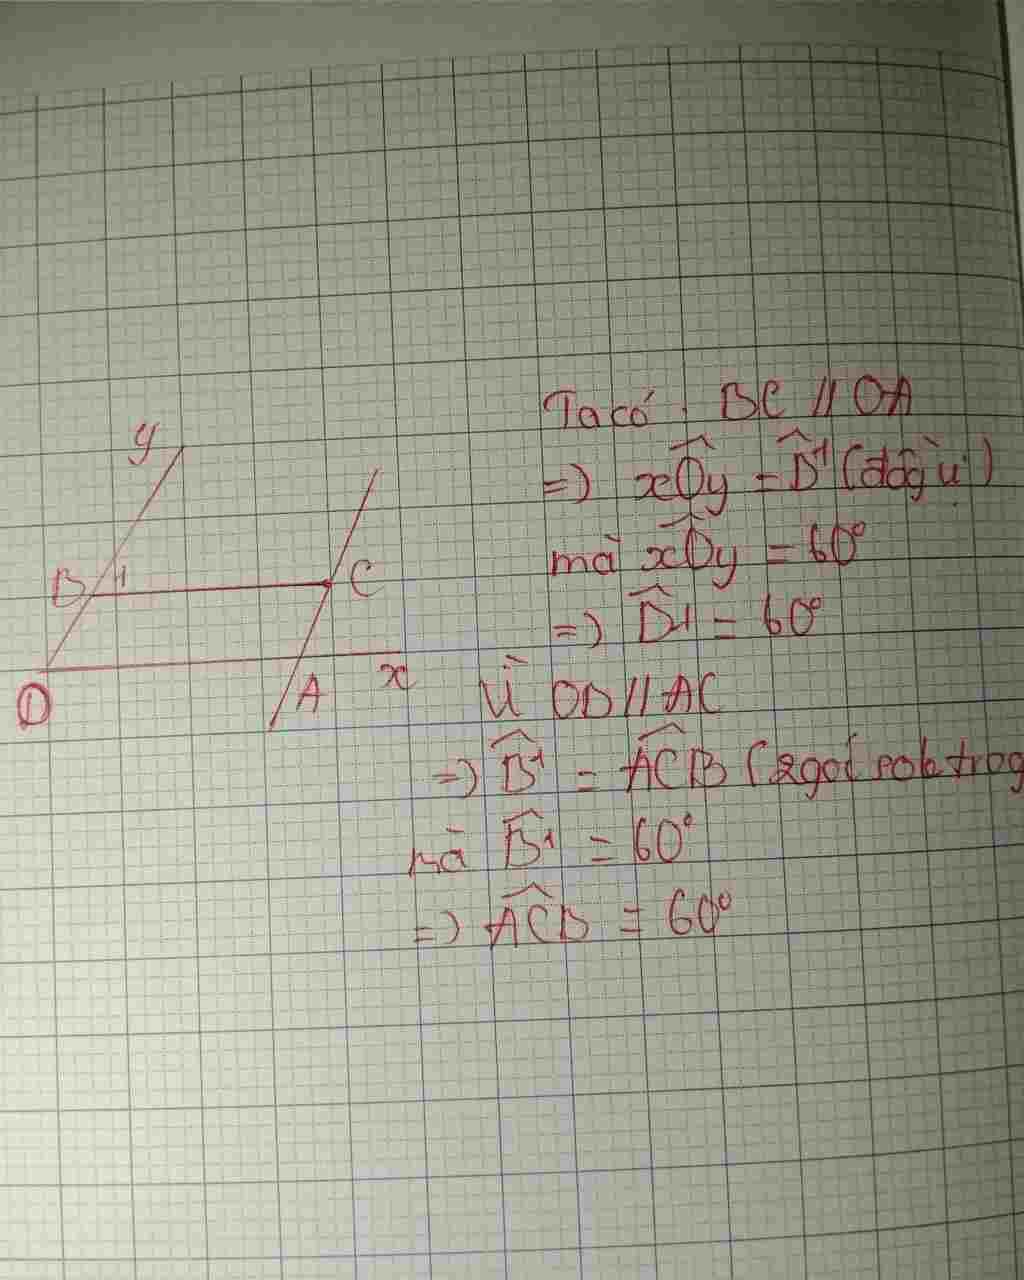 y
B 1
C
O
A
x
Ta có : BC // OA
=> xOy = B1 (đồg vị)
mà xOy = 60°
=> B1 = 60°
Vì OB // AC
=> B1 = ACB (2 góc sole trog
mà B1 = 60°
=> ACB = 60°